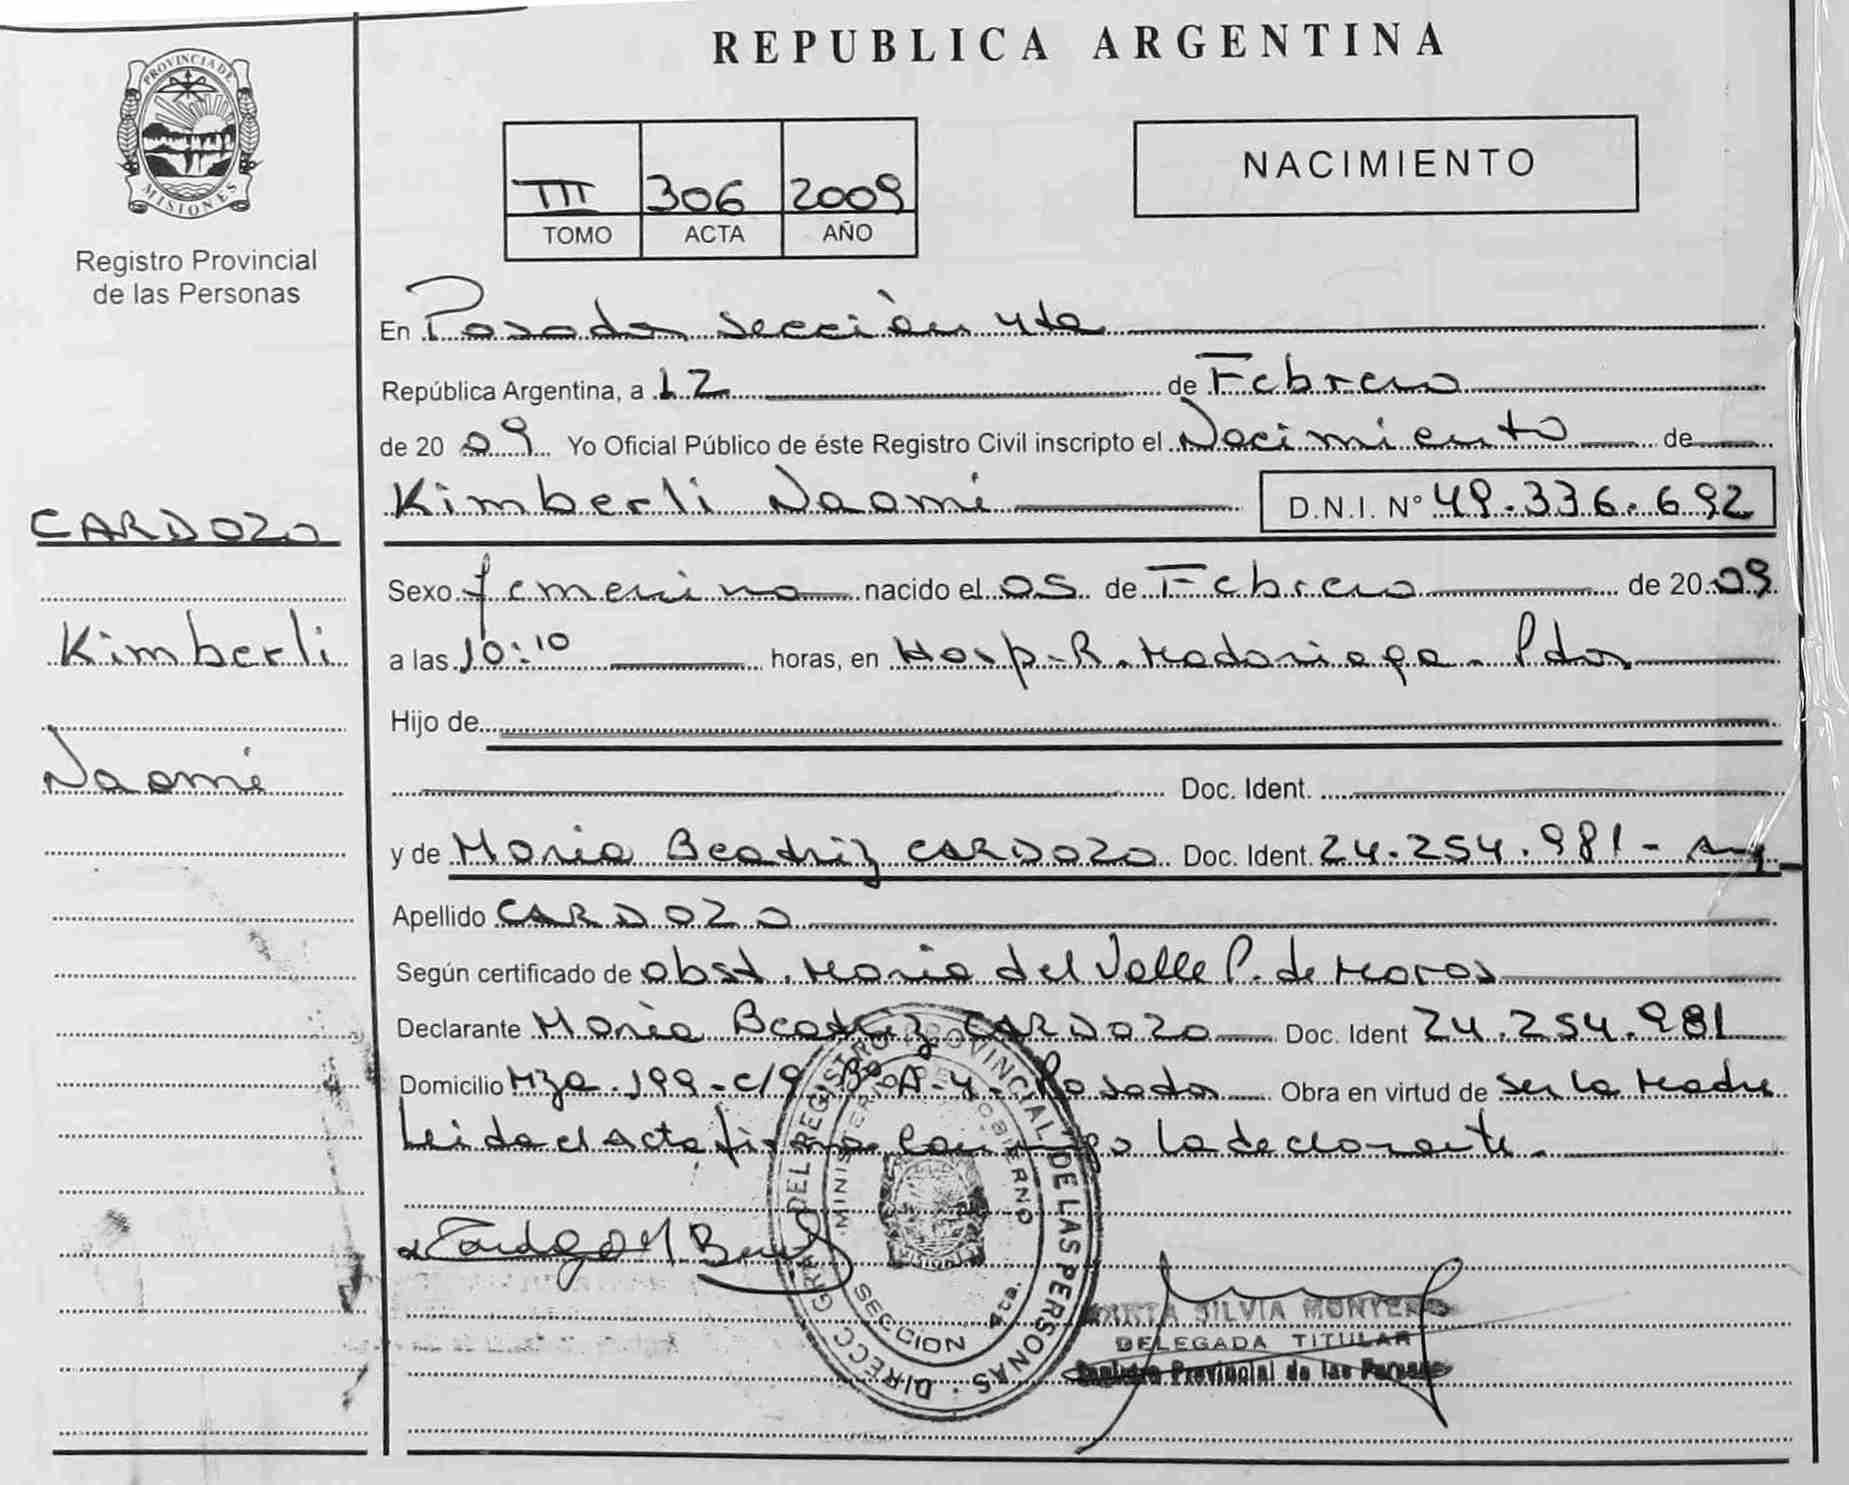 REPUBLICA ARGENTINA
PROVINCIA DE
MISIONES
Registro Provincial
de las Personas
III 306 2009
TOMO ACTA AÑO
NACIMIENTO
En Posadas sección 4ta
República Argentina, a 12 de Febrero
de 2009 Yo Oficial Público de éste Registro Civil inscripto el Nacimiento de
Kimberli Naomi D.N.I. Nº 49.336.692
CARDOZO
Kimberli
Naomi
Sexo femenino nacido el 05 de Febrero de 2009
a las 10:10 horas, en Hosp. R. Madariaga - Pdas
Hijo de
Doc. Ident.
y de María Beatriz CARDOZO Doc. Ident. 24.254.981 - Arg
Apellido CARDOZO
Según certificado de obst. María del Valle P. de Moras
Declarante María Beatriz CARDOZO Doc. Ident 24.254.981
Domicilio Mza. 199 - c/9 Bº A-4 - Posadas Obra en virtud de ser la Madre
Leida el Acta firma conmigo la declarante.
DIRECC GRAL DEL REGISTRO PROVINCIAL DE LAS PERSONAS
MINISTERIO DE GOBIERNO
SECCION 4ta.
MARTA SILVIA MONTERO
DELEGADA TITULAR
Registro Provincial de las Personas